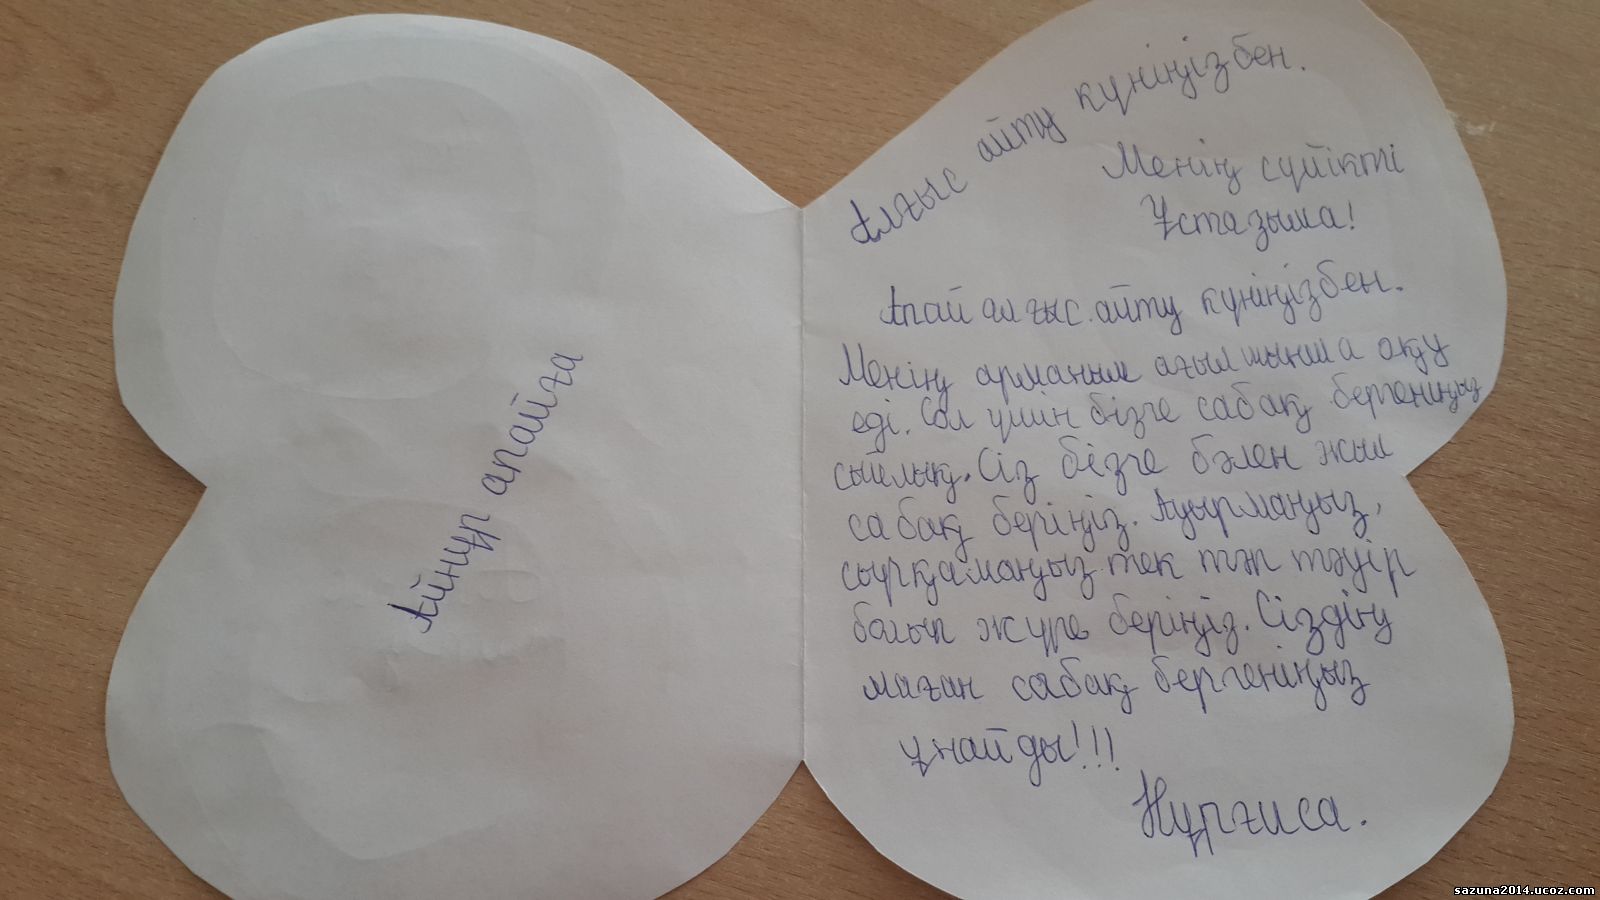 Айнұр апайға
Алғыс айту күніңізбен.
Менің сүйікті
Ұстазыма!
Апай алғыс айту күніңізбен.
Менің арманым ағылшынша оқу
еді. Сол үшін бізге сабақ бергеніңыз
сыйлық. Сіз бізге бәлен жыл
сабақ беріңіз. Ауырмаңыз,
сырқамаңыз тек тәп тәуір
болып жүре беріңіз. Сіздің
маған сабақ бергеніңыз
ұнайды!!!
Нұрғиса.
sazuna2014.ucoz.com